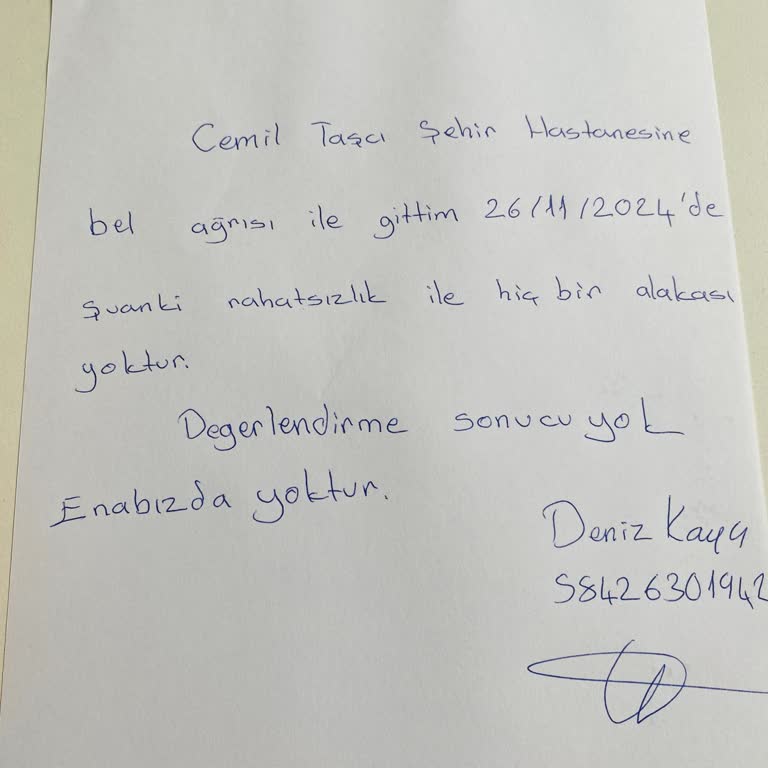 Cemil Taşcı Şehir Hastanesine
bel ağrısı ile gittim 26/11/2024'de
Şuanki rahatsızlık ile hiç bir alakası
yoktur.
Degerlendirme sonucu yok
Enabızda yoktur.
Deniz Kaya
58426301942